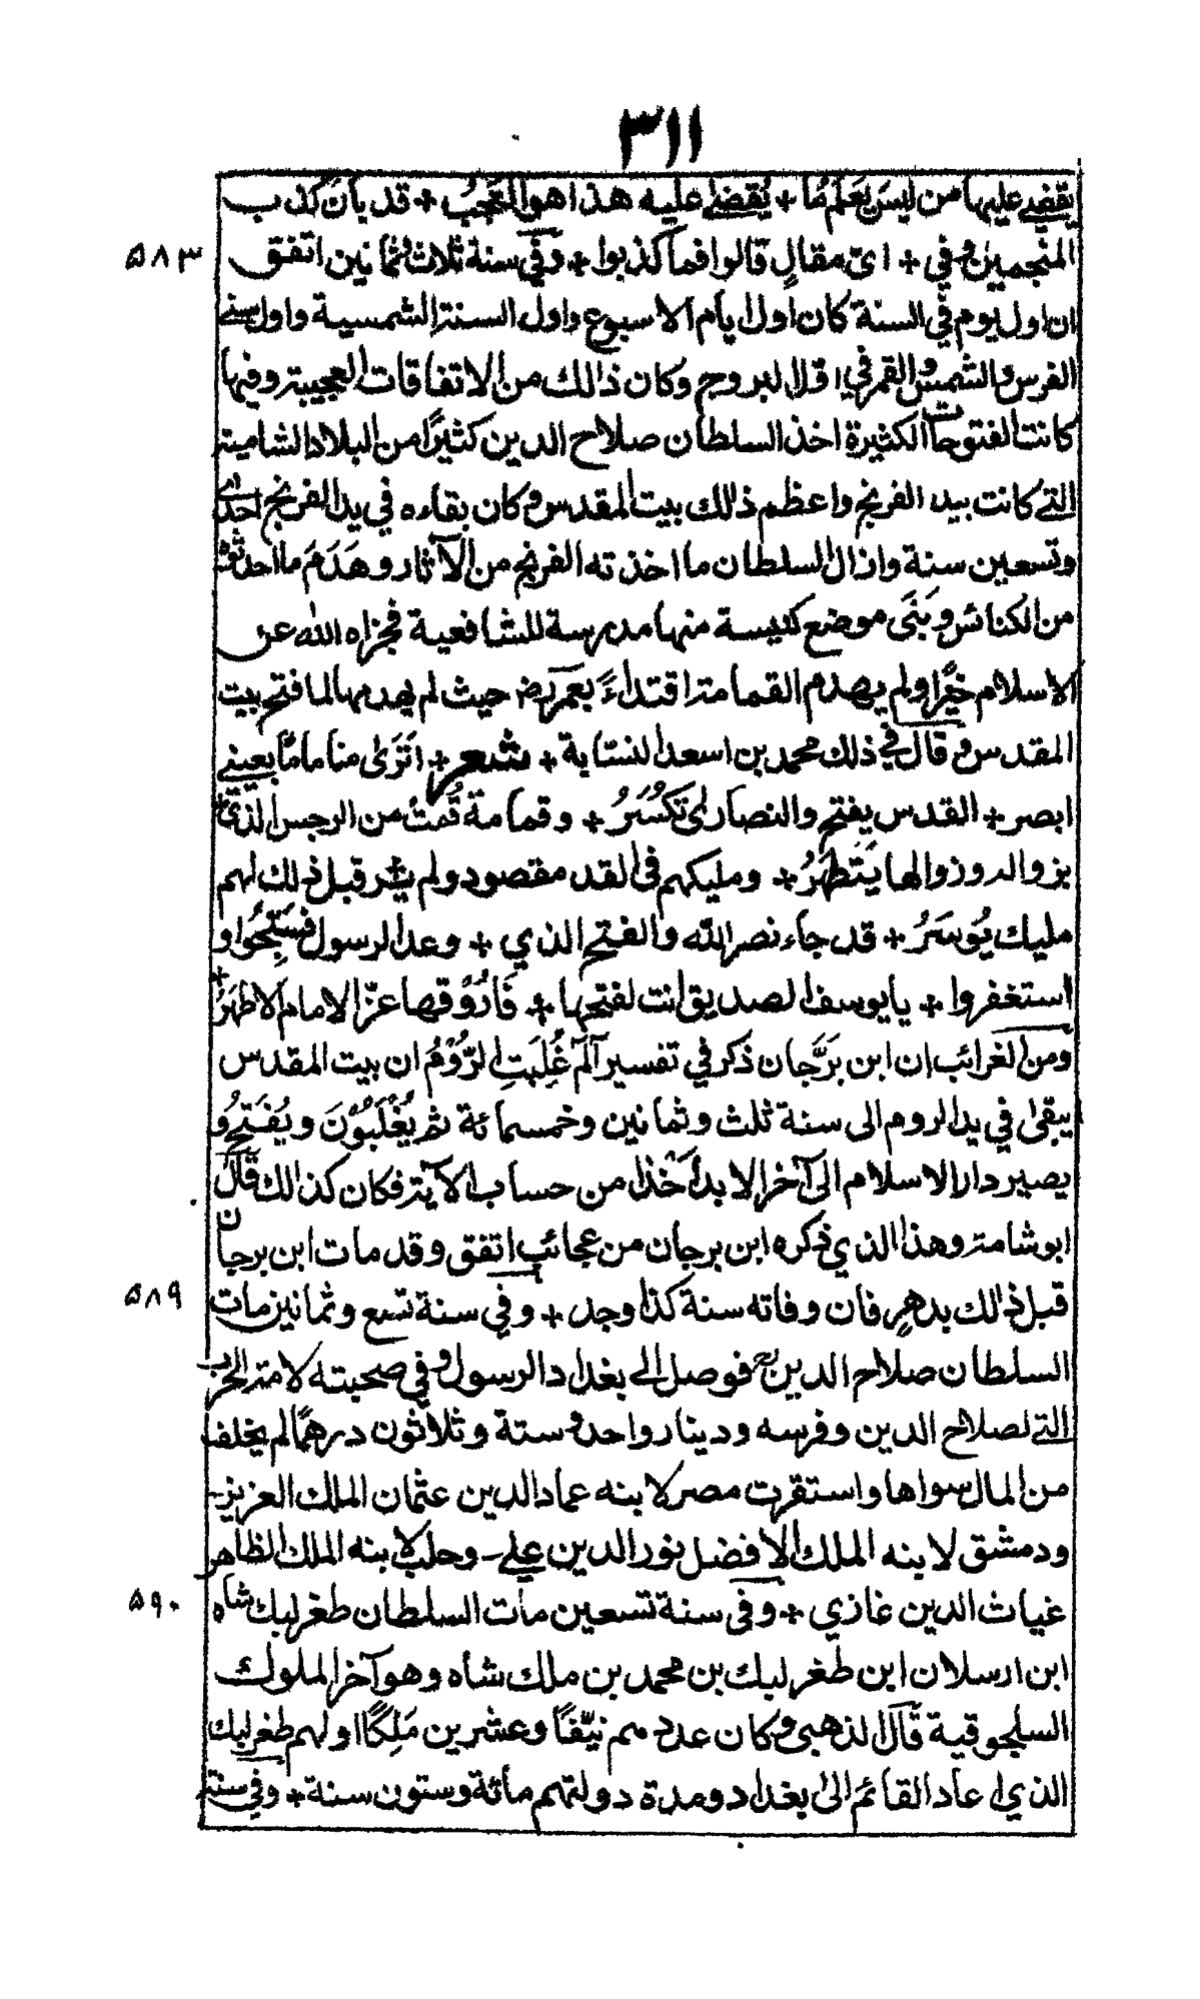 ٣١١
يقضي عليها من ليس يعلم ما + يُقضى عليه هذا هو العَجبُ + قد بان كذب
المنجمين وفي + اي مقالٍ قالوا فما كذبوا + وفي سنة ثلاث وثمانين اتفق
٥٨٣
ان اول يوم في السنة كان اول ايام الاسبوع واول السنة الشمسية واول سني
الفرس والشمس والقمر في اول البروج وكان ذالك من الاتفاقات العجيبة وفيها
كانت الفتوحات الكثيرة اخذ السلطان صلاح الدين كثيرًا من البلاد الشامية
التي كانت بيد الفرنج واعظم ذلك بيت المقدس وكان بقاءه في يد الفرنج احدى
وتسعين سنة وازال السلطان ما اخذته الفرنج من الآثار وهَدَمَ ما احدثوه
من الكنائس وبَنَى موضع كنيسة منها مدرسة للشافعية فجزاه الله عن
الاسلام خيرًا ولم يهدم القمامة اقتداءً بعمر رض حيث لم يهدمها لما فتح بيت
المقدس وقال في ذلك محمد بن اسعد النسابة + شعر + اتَرَى مناما مّا بعيني
ابصر + القدس يفتح والنصارى تكسُرُ + وقمامة قُمتْ من الرجس الذي +
بزواله وزوالها يَتَطَهَّرُ + ومليكهم في القد مقصود ولم يُر قبل ذلك لهم
مليك يُوسَرُ + قد جاء نصر الله والفتح الذي + وعد الرسول فسَبِّحُوا و
استغفروا + يا يوسف الصديق انت لفتحها + فَارُوْقها عزّ الامام الاطهَرُ +
ومن الغرائب ان ابن بَرَّجان ذكر في تفسير آلمٓ غُلِبَتِ الرُّوْمُ ان بيت المقدس
يبقى في يد الروم الى سنة ثلث وثمانين وخمسمائة ثم يُغْلَبُوْنَ ويُفتَحُ و
يصير دار الاسلام الى آخر الابد أَخْذًا من حساب الآية فكان كذالك قَالَ
ابو شامة وهذا الذي ذكره ابن برجان من عجائب اتفق وقد مات ابن برجان
قبل ذالك بدهرٍ فان وفاته سنة كذا وجد + وفي سنة تسع وثمانين مات
٥٨٩
السلطان صلاح الدين رح فوصل الى بغداد الرسول وفي صحبته لامة الحرب
التي لصلاح الدين وفرسه ودينار واحد وستة وثلاثون درهمًا لم يخلف
من المال سواها واستقرت مصر لابنه عماد الدين عثمان الملك العزيز
ودمشق لابنه الملك الافضل نور الدين علي وحلب لابنه الملك الظاهر
غياث الدين غازي + وفى سنة تسعين مات السلطان طغرلبك شاه
٥٩٠
ابن ارسلان ابن طغرلبك بن محمد بن ملك شاه وهو آخر الملوك
السلجوقية قَالَ الذهبي وكان عددهم نيّفًا وعشرين مَلِكًا اولهم طغرلبك
الذي اعاد القائم الى بغداد ومدة دولتهم مائة وستون سنة + وفي سنة